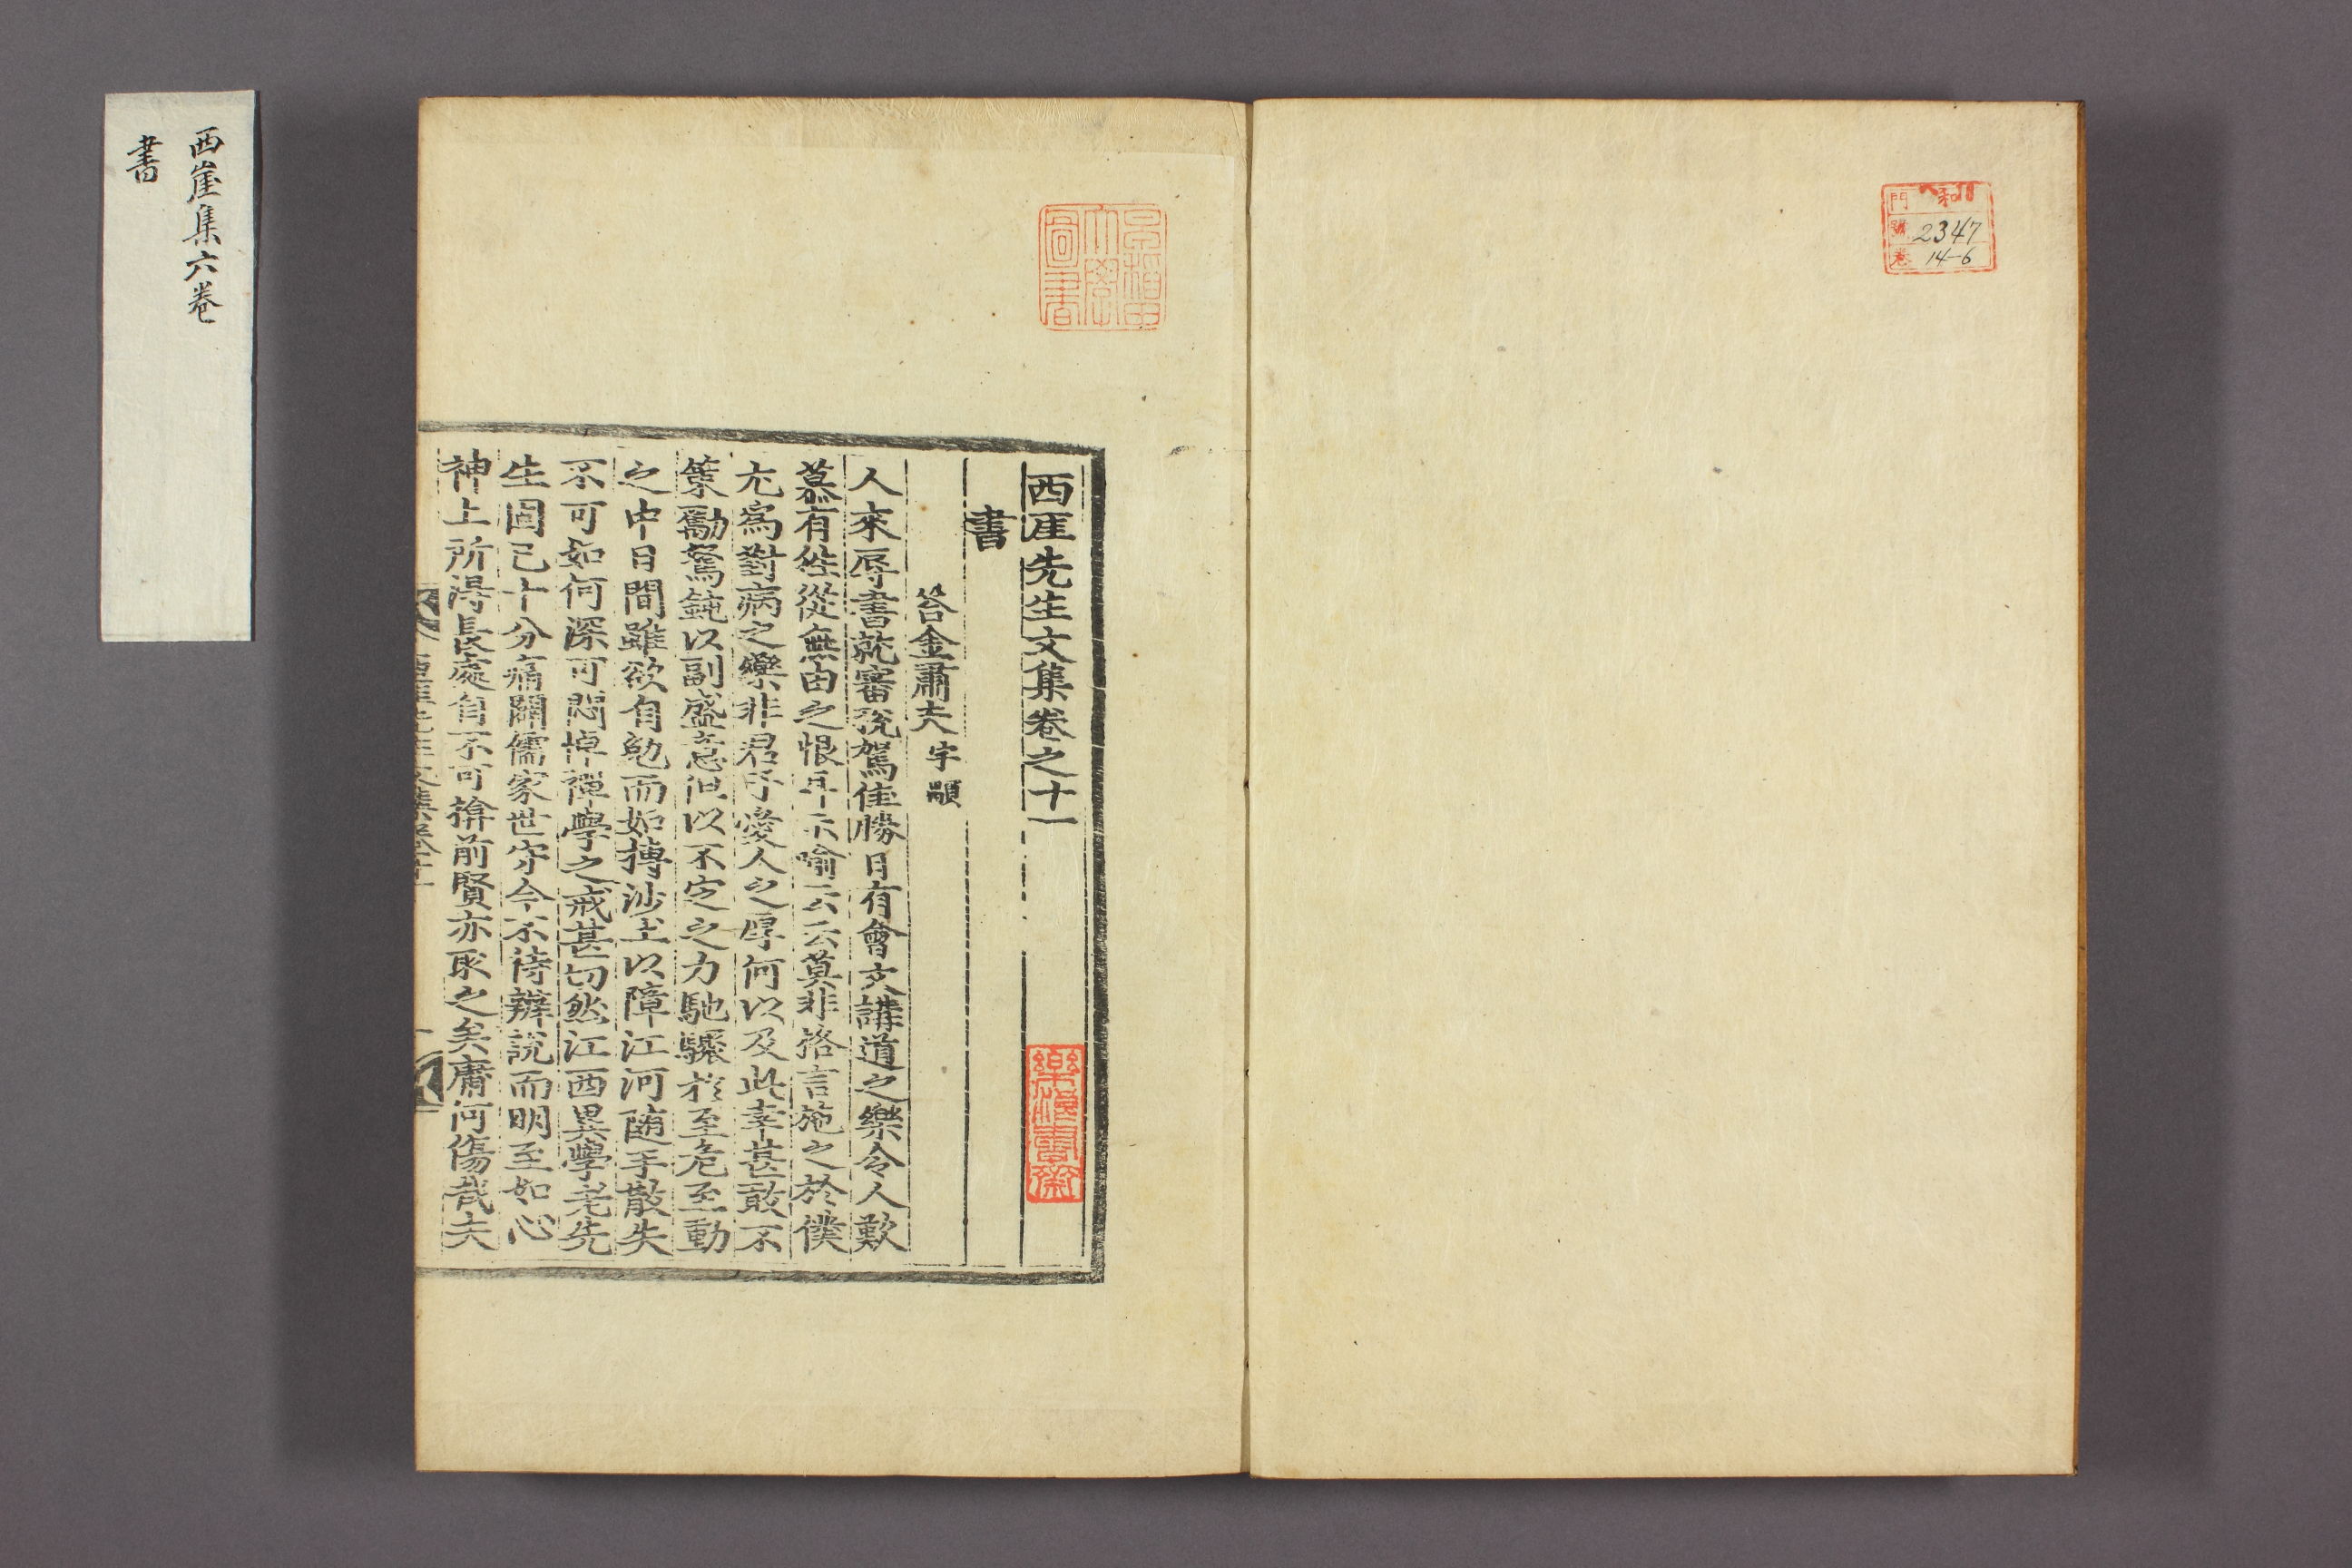 門
和
號
2347
卷
14-6
西厓先生文集卷之十一
書
答金肅夫 宇顒
人來辱書就審稅駕佳勝日有會文講道之樂令人歎
慕有然從無由之恨耳示喻云云莫非格言施之於僕
尤爲對病之藥非君子愛人之厚何以及此幸甚敢不
策勵駑鈍以副盛意但以不定之力馳驟於至危至動
之中日間雖欲自勉而如摶沙土以障江河隨手散失
不可如何深可悶悼禪學之戒甚切然江西異學老先
生固已十分痛闢儒家世守今不待辨說而明至如心
神上所得長處自不可揜前賢亦取之矣庸何傷哉夫
早稻田
大學
圖書
西崖集六卷
書